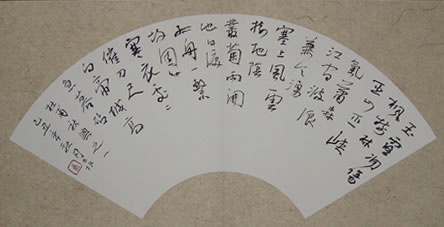 玉露凋傷
楓樹林
巫山巫峽
氣蕭森
江間波浪
兼天湧
塞上風雲
接地陰
叢菊兩開
他日淚
孤舟一繫
故園心
寒衣處處
催刀尺
白帝城高
急暮砧
杜甫秋興之一